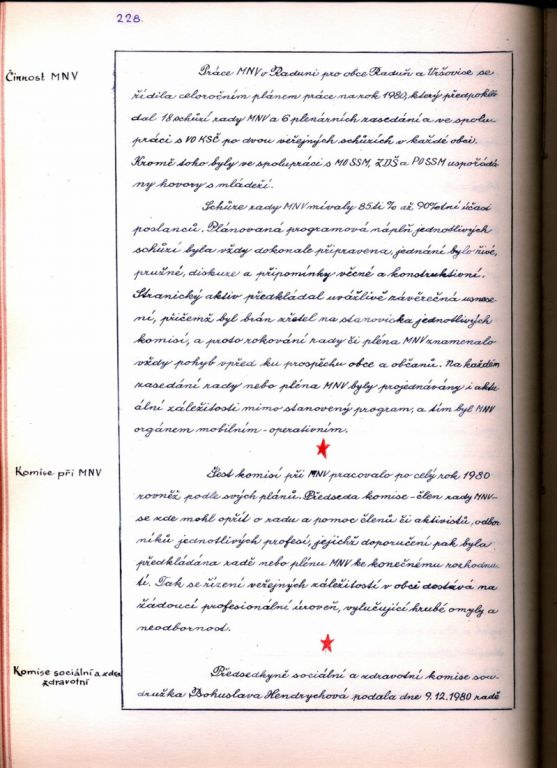 228.
Činnost MNV
Práce MNV v Raduni pro obce Raduň a Vršovice se
řídila celoročním plánem práce na rok 1980, který předpoklá-
dal 18 schůzí rady MNV a 6 plenárních zasedání a ve spolu-
práci s VO KSČ po dvou veřejných schůzích v každé obci.
Kromě toho byly ve spolupráci s MO SSM, ZDŠ a PO SSM uspořádá-
ny hovory s mládeží.
Schůze rady MNV mívaly 85ti % až 90%tní účast
poslanců. Plánovaná programová náplň jednotlivých
schůzí byla vždy dokonale připravena, jednání bylo živé,
pružné, diskuze a připomínky věcné a konstruktivní.
Stranický aktiv předkládal uvážlivě závěrečná usnese-
ní, přičemž byl brán zřetel na stanoviska jednotlivých
komisí, a proto rokování rady či pléna MNV znamenalo
vždy pohyb vpřed ku prospěchu obce a občanů. Na každém
zasedání rady nebo pléna MNV byly projednávány i aktu-
ální záležitosti mimo stanovený program, a tím byl MNV
orgánem mobilním - operativním.
Komise při MNV
Šest komisí při MNV pracovalo po celý rok 1980
rovněž podle svých plánů. Předseda komise - člen rady MNV -
se zde mohl opřít o radu a pomoc členů či aktivistů, odbor-
níků jednotlivých profesí, jejichž doporučení pak byla
předkládána radě nebo plénu MNV ke konečnému rozhodnu-
tí. Tak se řízení veřejných záležitostí v obci dostává na
žádoucí profesionální úroveň, vylučující hrubé omyly a
neodbornost.
Komise sociální a zdra
zdravotní
Předsedkyně sociální a zdravotní komise sou-
družka Bohuslava Hendrychová podala dne 9.12.1980 radě